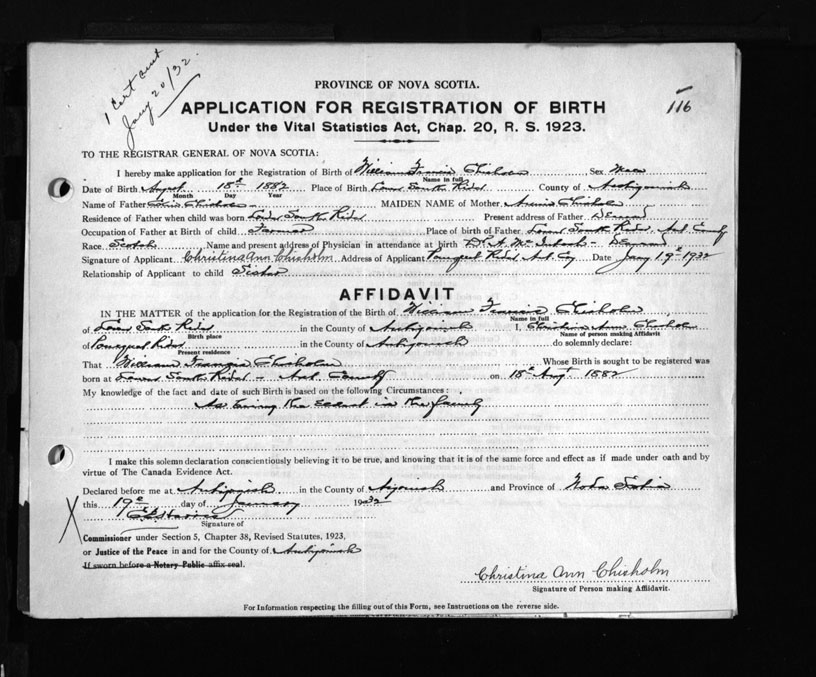 1 Cert sent
Jany 20/32
PROVINCE OF NOVA SCOTIA.
116
APPLICATION FOR REGISTRATION OF BIRTH
Under the Vital Statistics Act, Chap. 20, R. S. 1923.
TO THE REGISTRAR GENERAL OF NOVA SCOTIA:
I hereby make application for the Registration of Birth of William Francis Chisholm Sex Male
Name in full
Date of Birth August 18th 1882 Place of Birth Lower South River County of Antigonish
Month Day Year
Name of Father Chisholm MAIDEN NAME of Mother Annie Chisholm
Residence of Father when child was born Lower South River Present address of Father Deceased
Occupation of Father at Birth of child Farmer Place of birth of Father Lower South River, Ant. County
Race Scotch Name and present address of Physician in attendance at birth Dr. Deceased
Signature of Applicant Christina Ann Chisholm Address of Applicant Pomquet River Ant. Co Date Jany 19th 1932
Relationship of Applicant to child Sister
AFFIDAVIT
IN THE MATTER of the application for the Registration of the Birth of William Francis Chisholm
Name in full
of Lower South River in the County of Antigonish I, Christina Ann Chisholm
Birth place Name of person making Affidavit
of Pomquet River in the County of Antigonish do solemnly declare:
Present residence
That William Francis Chisholm Whose Birth is sought to be registered was
born at Lower South River - Ant. County on 18th Augt 1882
My knowledge of the fact and date of such Birth is based on the following Circumstances:
As being the eldest in the family
I make this solemn declaration conscientiously believing it to be true, and knowing that it is of the same force and effect as if made under oath and by
virtue of The Canada Evidence Act.
Declared before me at Antigonish in the County of and Province of Nova Scotia
this 19th day of January 1932
Signature of
X Commissioner under Section 5, Chapter 38, Revised Statutes, 1923,
or Justice of the Peace in and for the County of Antigonish
If sworn before a Notary Public affix seal.
Christina Ann Chisholm
Signature of Person making Affidavit.
For Information respecting the filling out of this Form, see Instructions on the reverse side.